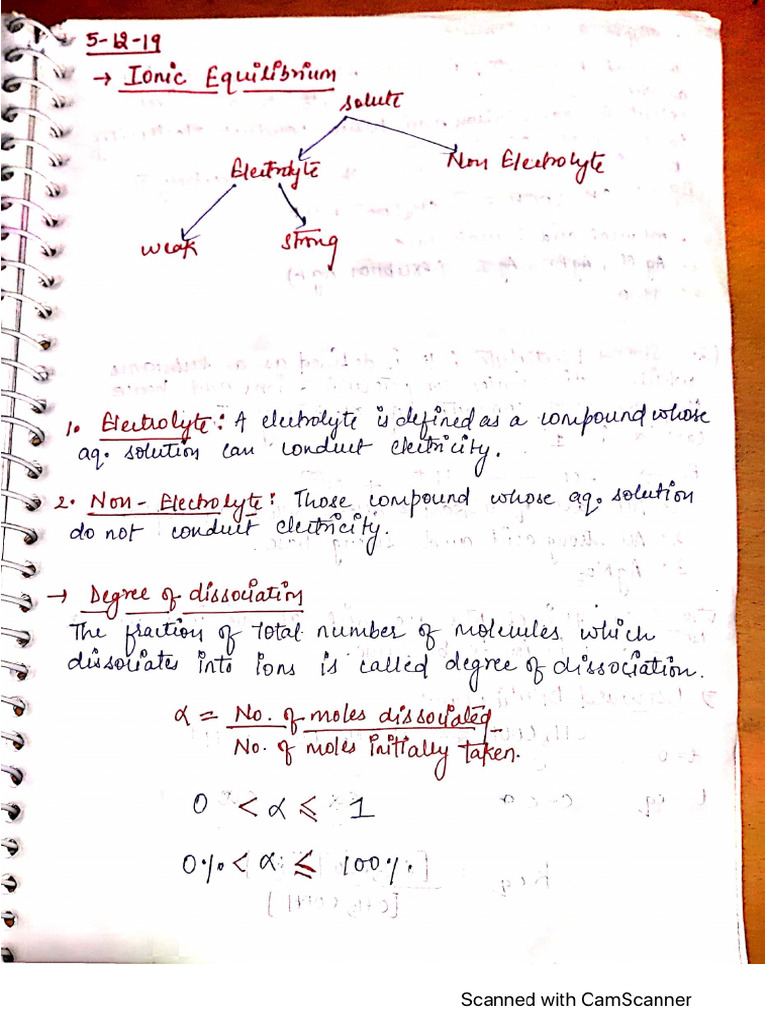 5-12-19
→ Ionic Equilibrium
Solute
Electrolyte Non Electrolyte
weak strong
1. Electrolyte: A electrolyte is defined as a compound whose
aq. solution can conduct electricity.
2. Non-Electrolyte: Those compound whose aq. solution
do not conduct electricity.
→ Degree of dissociation
The fraction of total number of molecules which
dissociates into ions is called degree of dissociation.
α = No. of moles dissociated
No. of moles initially taken.
0 < α ≤ 1
0% < α ≤ 100%
Scanned with CamScanner